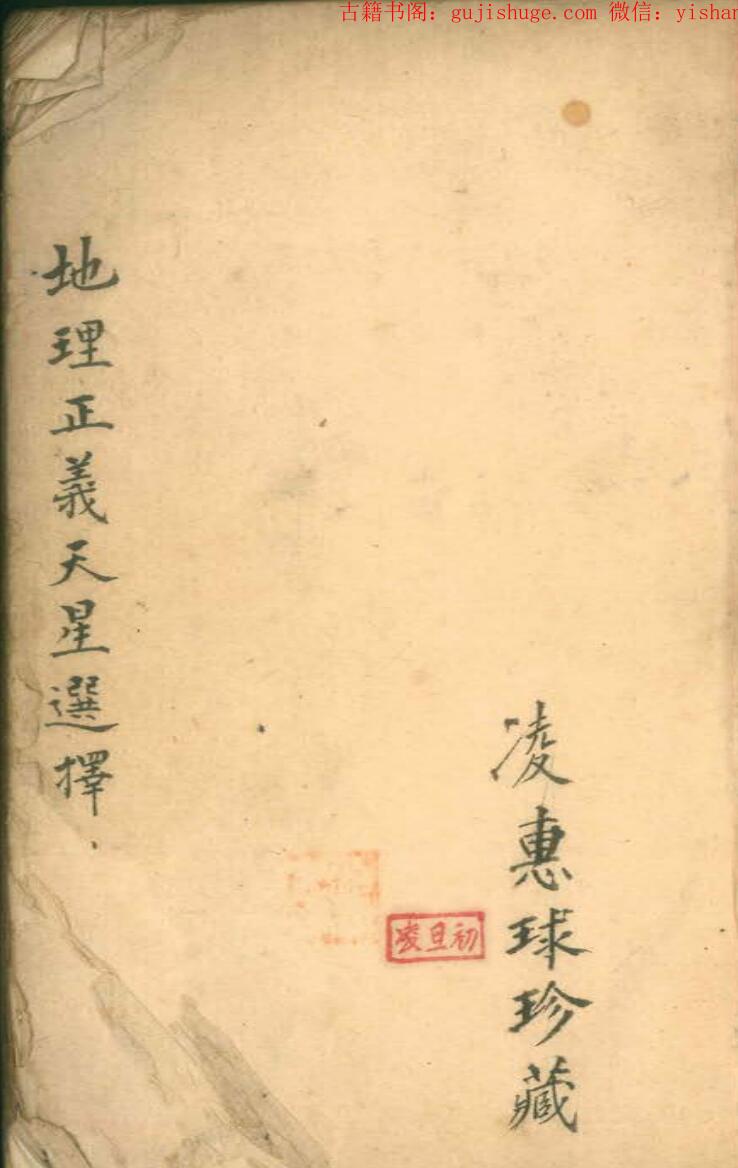 古籍书阁：gujishuge.com 微信：yishan
地理正義天星選擇
凌惠球珍藏
凌旦初